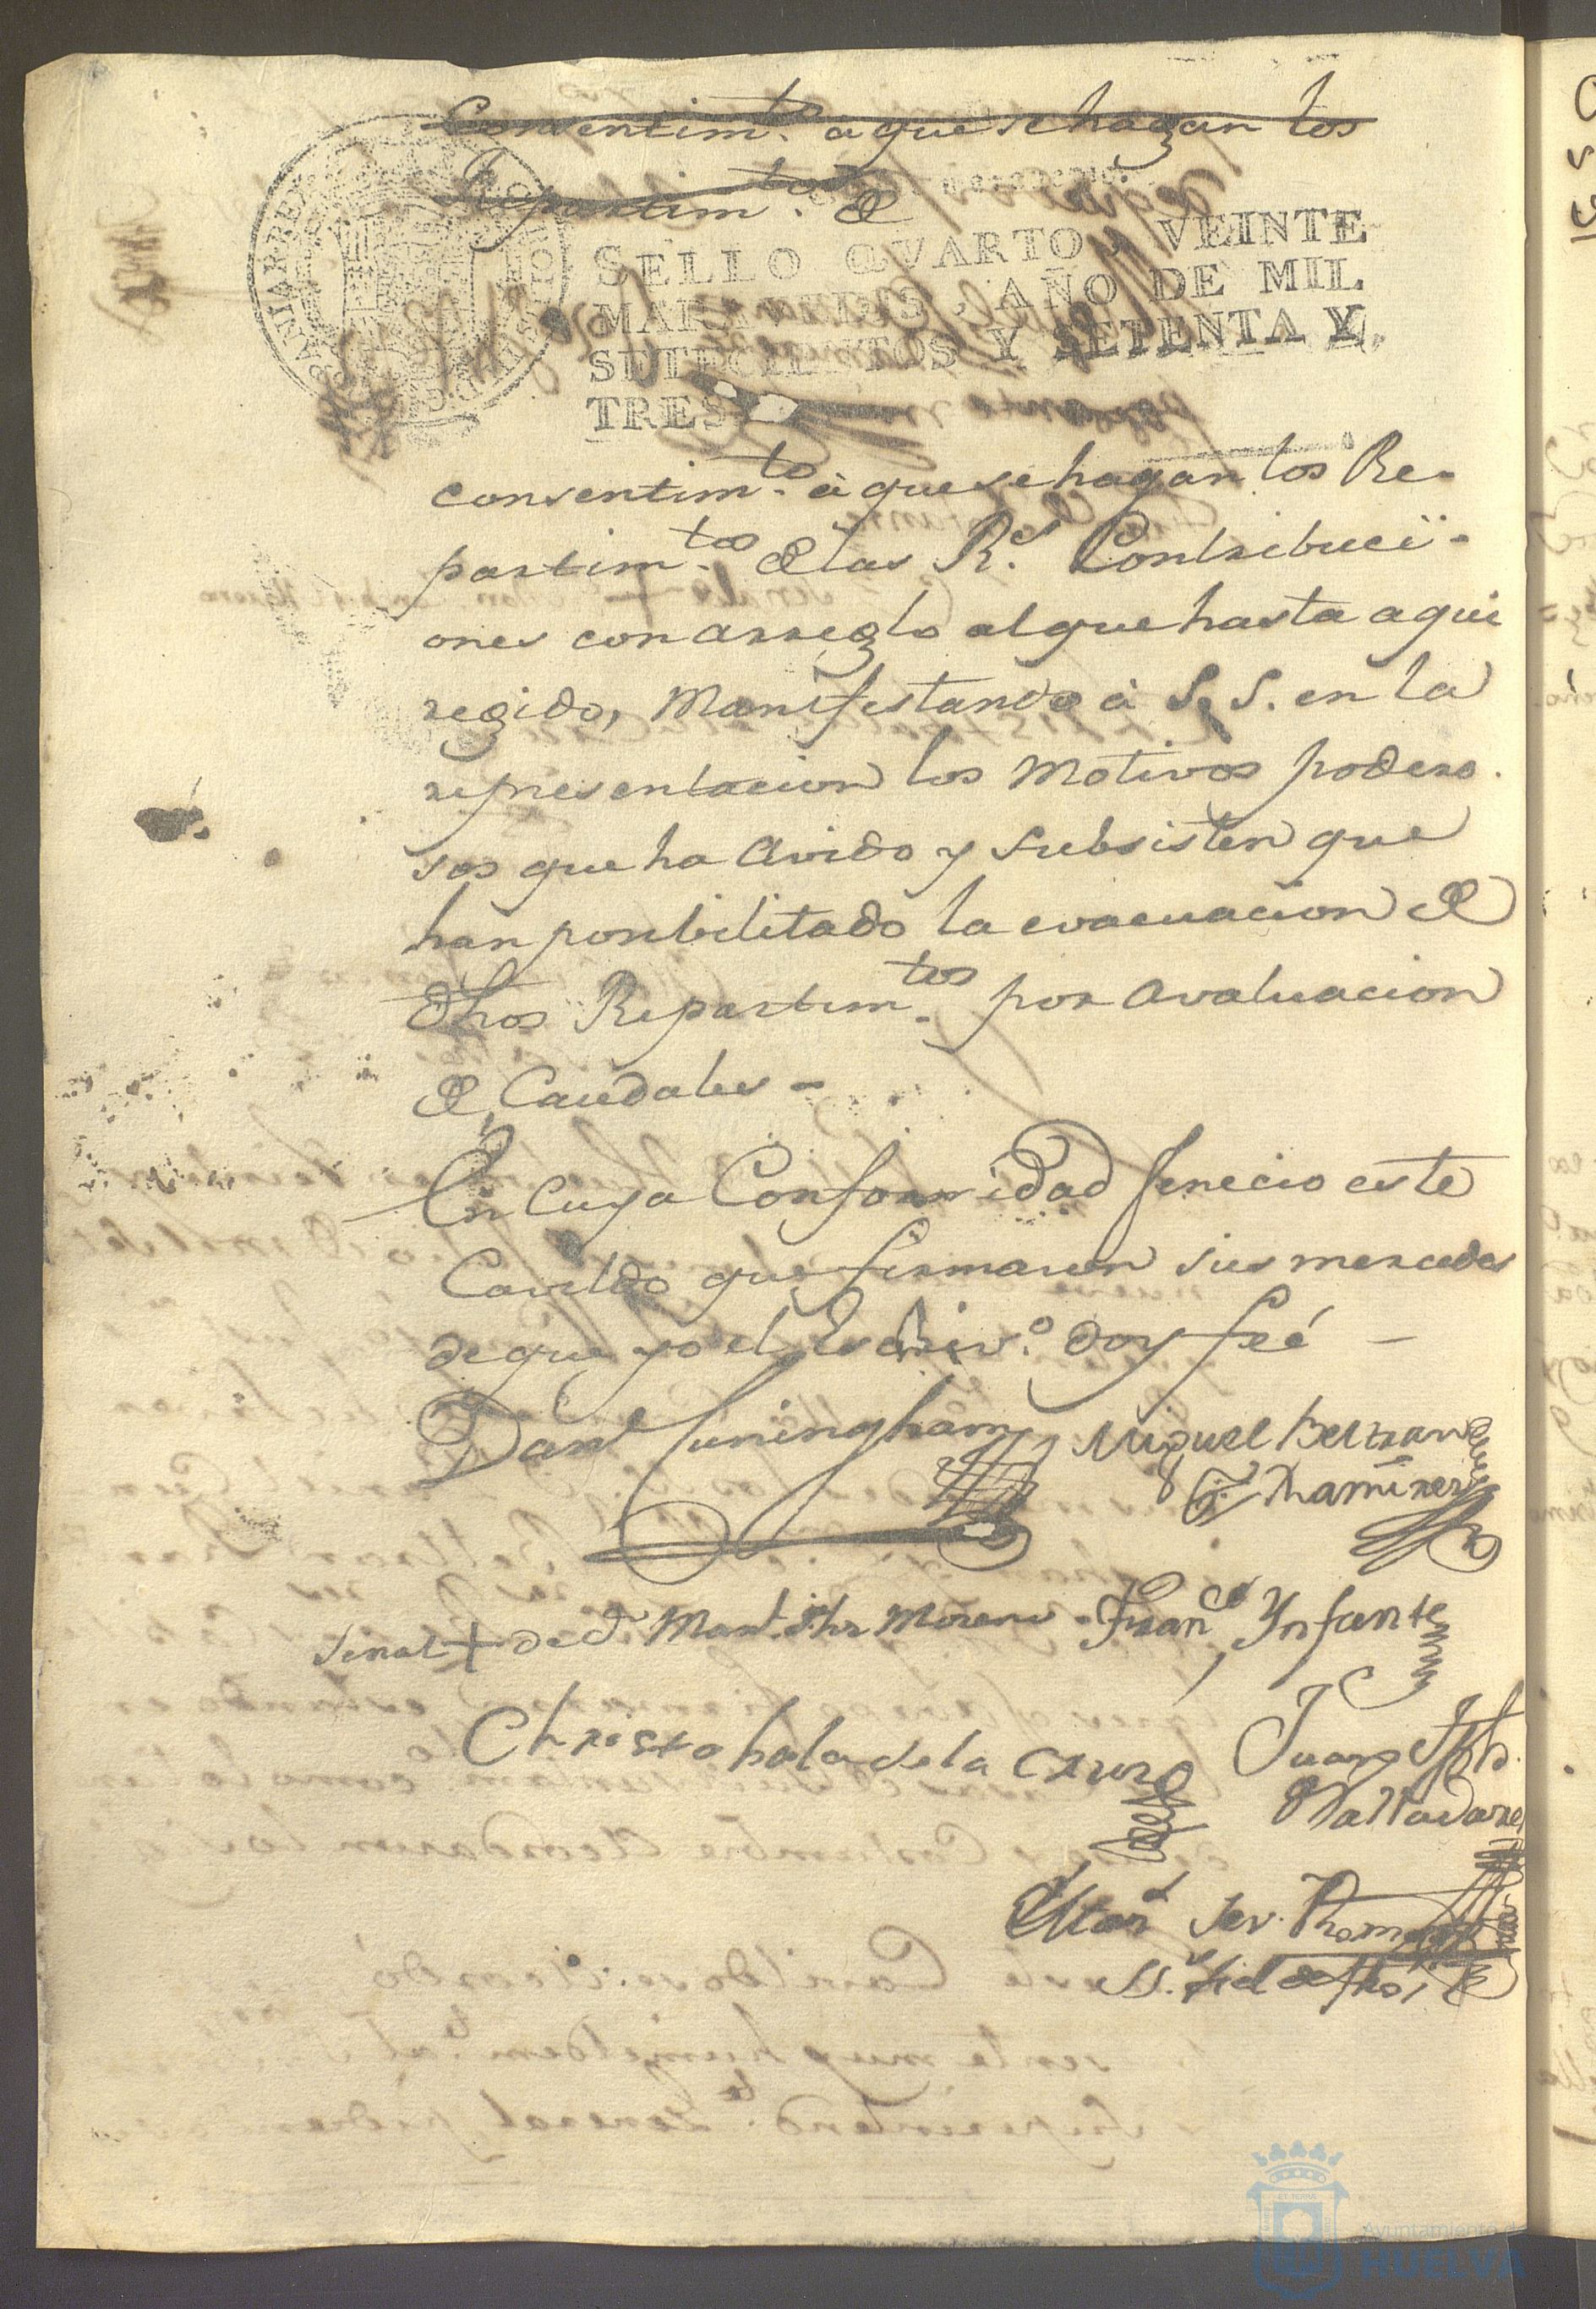 Consentim.to à que se hagan los
Repartim.tos de
SELLO QVARTO, VEINTE
MARAVEDIS, AÑO DE MIL
SETECIENTOS Y SETENTA Y
TRES
consentim.to à que se hagan los Re-
partim.tos de las R.s Contribuci-
ones con arreglo al que hasta aqui
regido, Manifestando à S. S. en la
representacion los Motivos podero-
sos que ha avido y subsisten que
han posibilitado la evacuacion de
dhos Repartim.tos por avaluacion
de Caudales -
En cuya Conformidad fenecio este
Cavildo que firmaron sus mercedes
de que yo el Escriv.o doy feé -
Dan.l Cuningham Miguel Beltran
Ramirez
Señal + de d.n Man.l Moreno - Fran.co Ynfante
Christobal de la Cruz Juan Jph.
Valladares
SS.o fiel de fhos
Ayuntamiento de
HUELVA